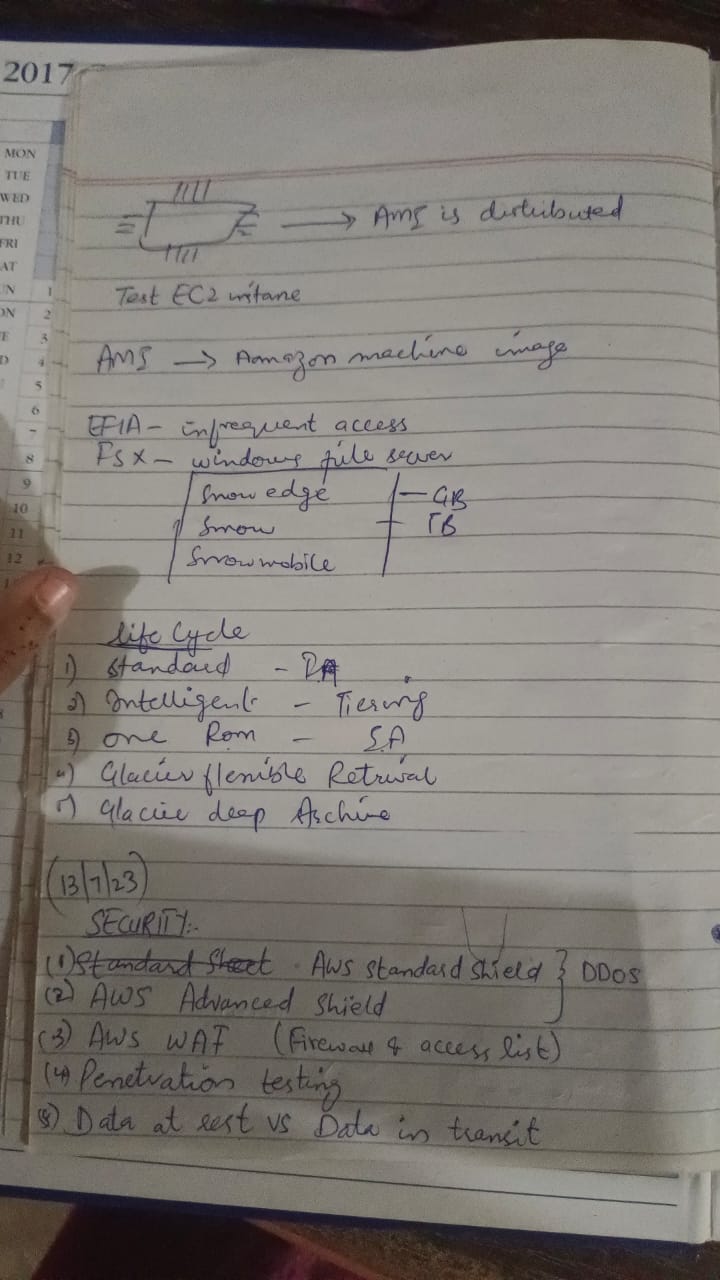 2017
MON
TUE
WED
THU
FRI
AT
UN 1
ON 2
E 3
D 4
5
6
7
8
9
10
11
12
→ AMI is distributed
Test EC2 instane
AMI → Aamazon machine image
EFIA - infrequent access
FSX - windows file sever
Snow edge - GB
Snow TB
Snowmobile
life Cycle
1) standard -
2) Intelligent - Tiering
3) one Rom - IA
4) Glacier flenible Retrival
5) Glacier deep Archive
(13/7/23)
SECURITY:-
(1) Standard Sheet AWS standard shield } DDOS
(2) AWS Advanced Shield
(3) AWS WAF (Firewall & access list)
(4) Penetration testing
(5) Data at rest vs Data in transit